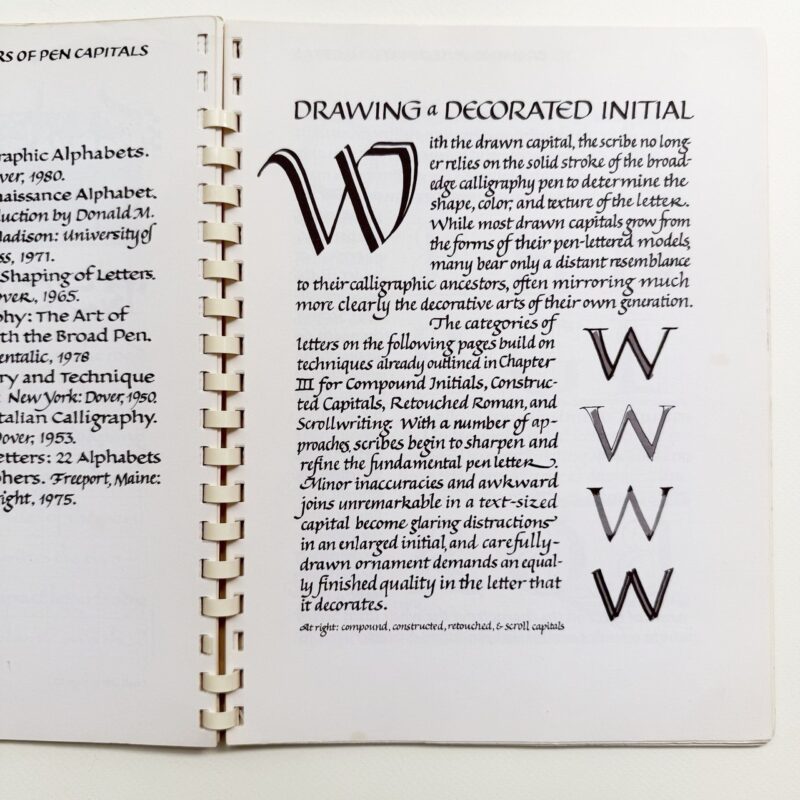 RS OF PEN CAPITALS
raphic Alphabets.
ver, 1980.
naissance Alphabet.
duction by Donald M.
Madison: University of
ss, 1971.
Shaping of Letters.
over, 1965.
phy: The Art of
th the Broad Pen.
entalic, 1978
ry and Technique
New York: Dover, 1950.
talian Calligraphy.
over, 1953.
etters: 22 Alphabets
phers. Freeport, Maine:
right, 1975.
DRAWING a DECORATED INITIAL
With the drawn capital, the scribe no long-
er relies on the solid stroke of the broad-
edge calligraphy pen to determine the
shape, color, and texture of the letter.
While most drawn capitals grow from
the forms of their pen-lettered models,
many bear only a distant resemblance
to their calligraphic ancestors, often mirroring much
more clearly the decorative arts of their own generation.
The categories of
letters on the following pages build on
techniques already outlined in Chapter
III for Compound Initials, Construc-
ted Capitals, Retouched Roman, and
Scrollwriting. With a number of ap-
proaches, scribes begin to sharpen and
refine the fundamental pen letter.
Minor inaccuracies and awkward
joins unremarkable in a text-sized
capital become glaring distractions
in an enlarged initial, and carefully-
drawn ornament demands an equal-
ly finished quality in the letter that
it decorates.
At right: compound, constructed, retouched, & scroll capitals
W
W
W
W